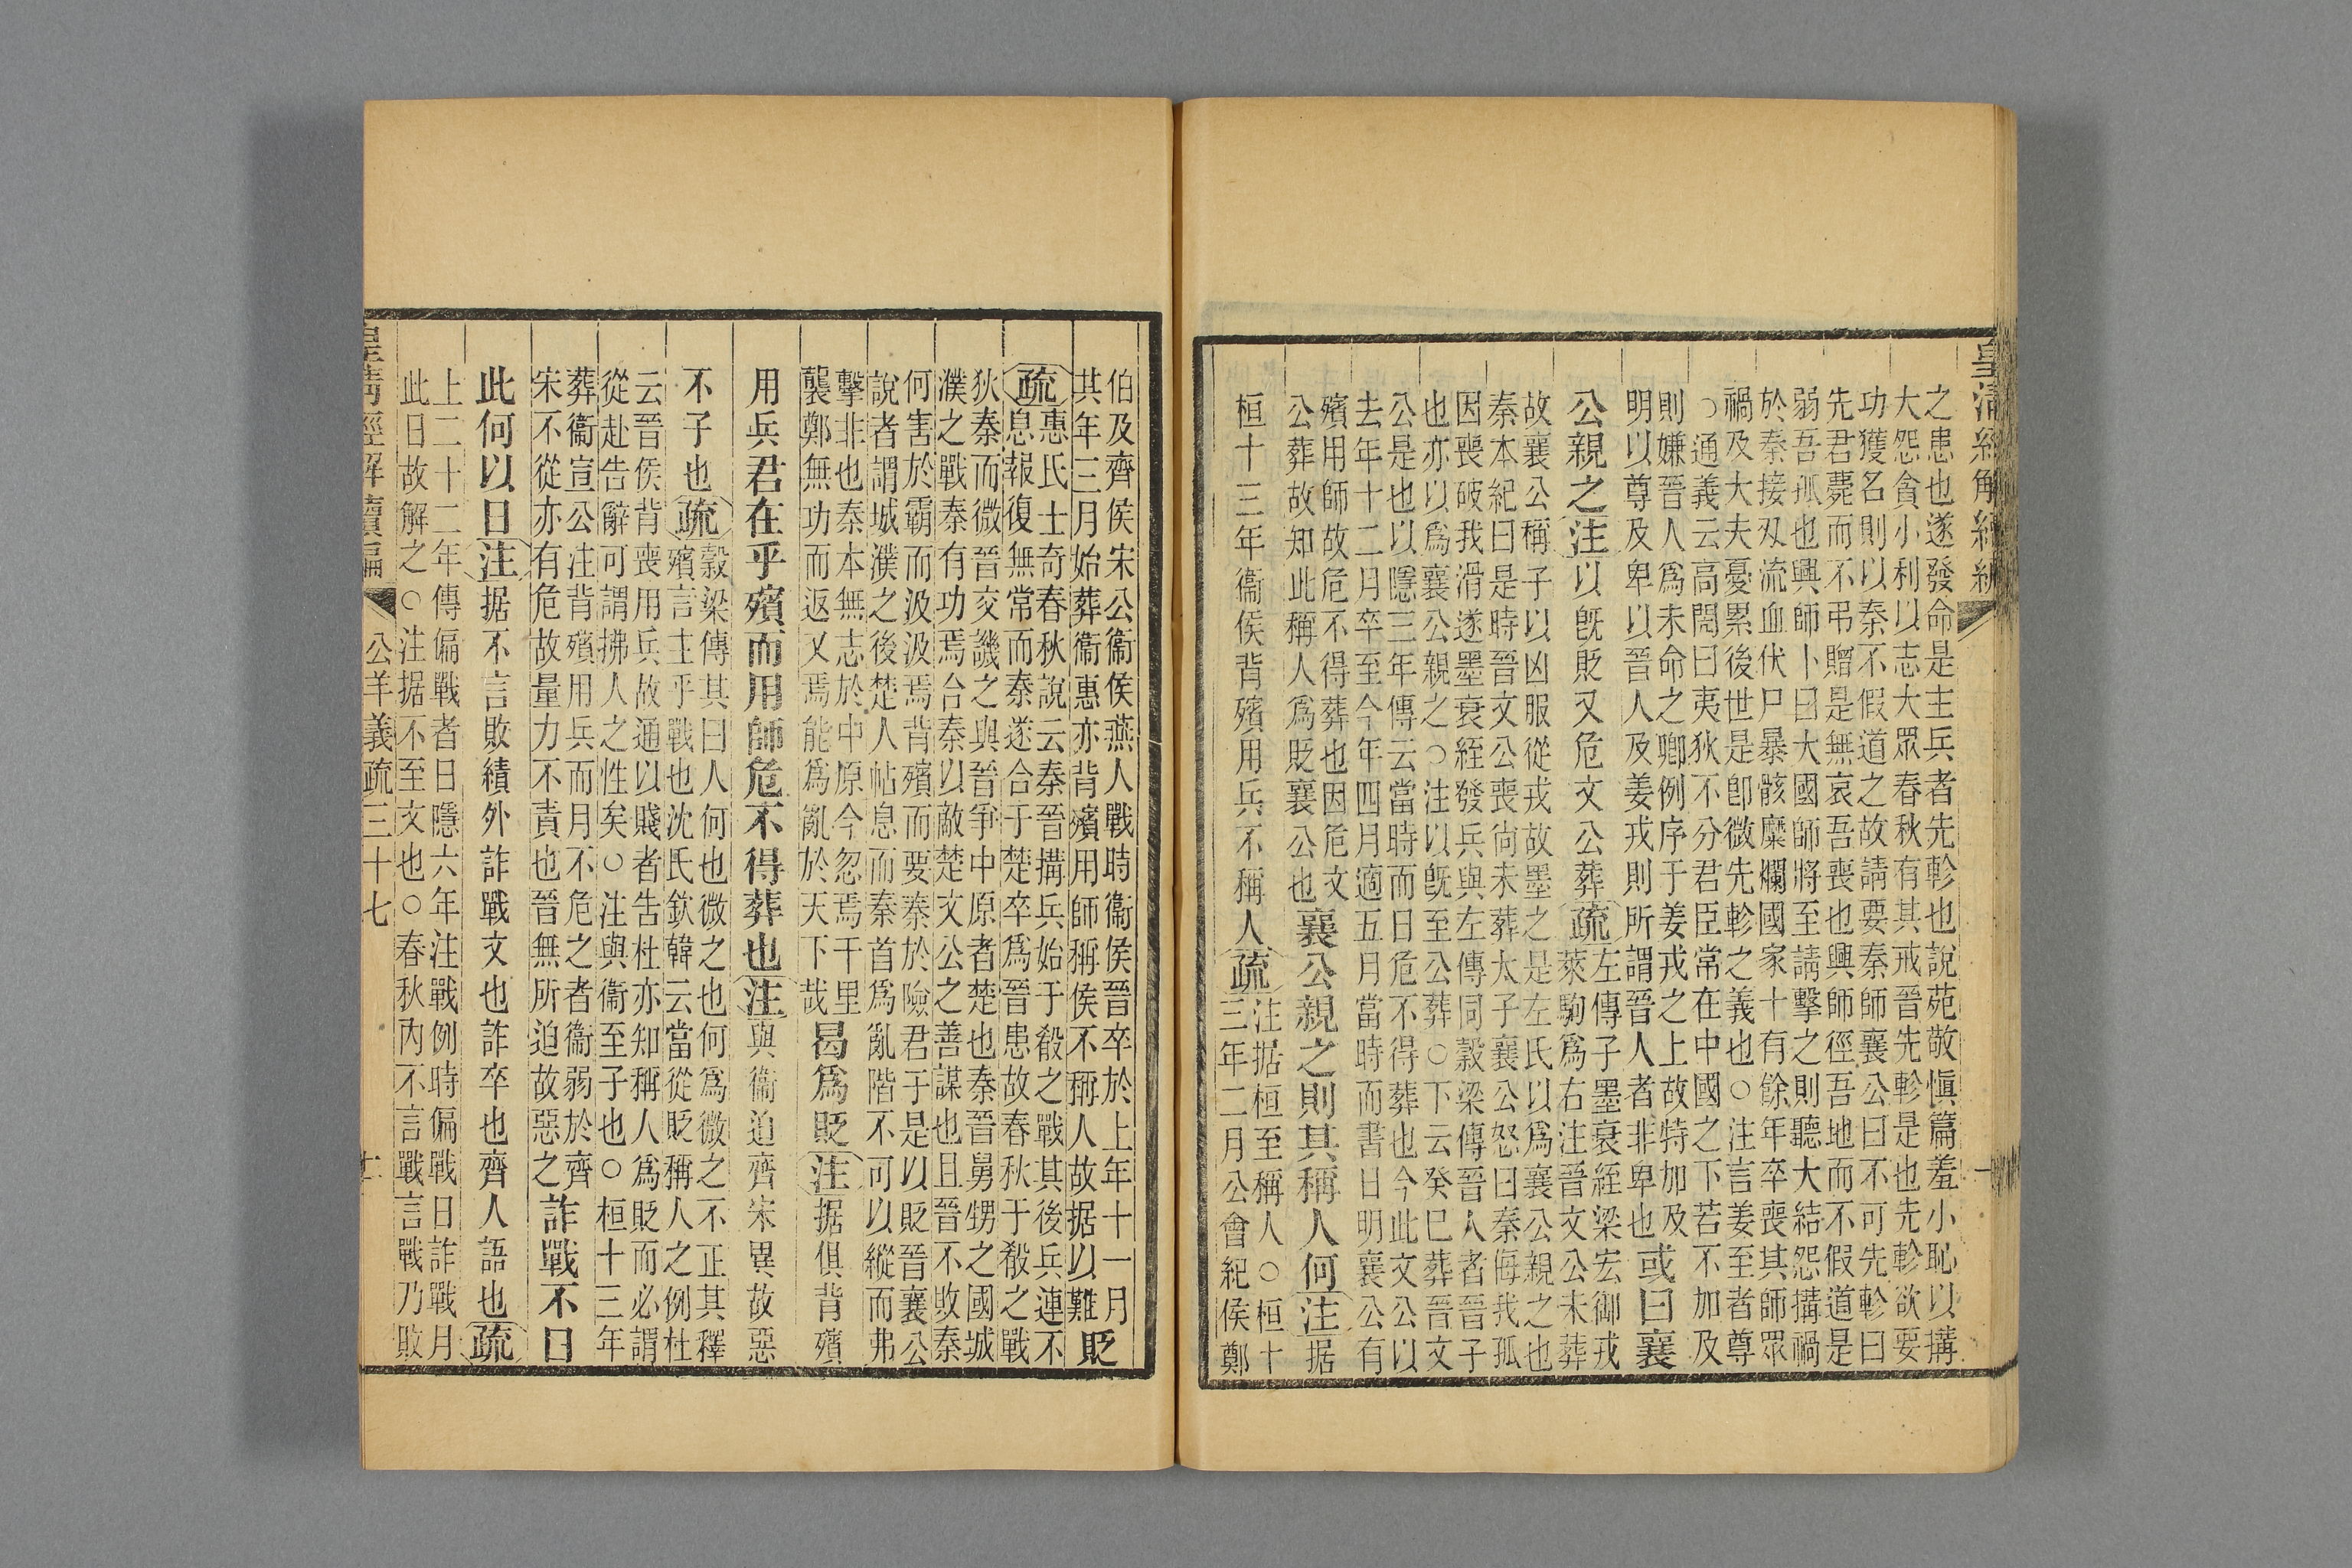 皇清經解續編
之患也遂發命是主兵者先軫也說苑敬愼篇羞小恥以搆
大怨貪小利以志大眾春秋有其戒晉先軫是也先軫欲要
功獲名則以秦不假道之故請要秦師襄公曰不可先軫曰
先君薨而不弔贈是無哀吾喪也興師徑吾地而不假道是
弱吾孤也興師卜曰大國師將至請擊之則聽大結怨搆禍
於秦接刄流血伏尸暴骸糜爛國家十有餘年卒喪其師眾
禍及大夫憂累後世是卽微先軫之義也○注言姜至者尊
○通義云高閌曰夷狄不分君臣常在中國之下若不加及
則嫌晉人爲未命之卿例序于姜戎之上故特加及
明以尊及卑以晉人及姜戎則所謂晉人者非卑也或曰襄
公親之注以旣貶又危文公葬疏左傳子墨衰絰梁宏御戎
萊駒爲右注晉文公未葬
故襄公稱子以凶服從戎故墨之是左氏以爲襄公親之也
秦本紀曰是時晉文公喪尙未葬太子襄公怒曰秦侮我孤
因喪破我滑遂墨衰絰發兵與左傳同穀梁傳晉人者晉子
也亦以爲襄公親之○注以旣至公葬○下云癸巳葬晉文
公是也以隱三年傳云當時而日危不得葬也今此文公以
去年十二月卒至今年四月適五月當時而書日明襄公有
殯用師故危不得葬也因危文
公葬故知此稱人爲貶襄公也襄公親之則其稱人何注据
桓十三年衞侯背殯用兵不稱人疏注据桓至稱人○桓十
三年二月公會紀侯鄭
伯及齊侯宋公衞侯燕人戰時衞侯晉卒於上年十一月
其年三月始葬衞惠亦背殯用師稱侯不稱人故据以難貶
疏惠氏士奇春秋說云秦晉搆兵始于殽之戰其後兵連不
息報復無常而秦遂合于楚卒爲晉患故春秋于殽之戰
狄秦而微晉交譏之與晉爭中原者楚也秦晉舅甥之國城
濮之戰秦有功焉台秦以敵楚文公之善謀也且晉不敗秦
何害於霸而汲汲焉背殯而要秦於險君子是以貶晉襄公
說者謂城濮之後楚人帖息而秦首爲亂階不可以縱而弗
擊非也秦本無志於中原今忽焉千里
襲鄭無功而返又焉能爲亂於天下哉曷爲貶注据俱背殯
用兵君在乎殯而用師危不得葬也注與衞迫齊宋異故惡
不子也疏穀梁傳其曰人何也微之也何爲微之不正其釋
殯言主乎戰也沈氏欽韓云當從貶稱人之例杜
云晉侯背喪用兵故通以賤者告杜亦知稱人爲貶而必謂
從赴告辭可謂拂人之性矣○注與衞至子也○桓十三年
葬衞宣公注背殯用兵而月不危之者衞弱於齊
宋不從亦有危故量力不責也晉無所迫故惡之詐戰不日
此何以日注据不言敗績外詐戰文也詐卒也齊人語也疏
上二十二年傳偏戰者日隱六年注戰例時偏戰日詐戰月
此日故解之○注据不至文也○春秋內不言戰言戰乃敗
皇淸經解續編
公羊義疏三十七